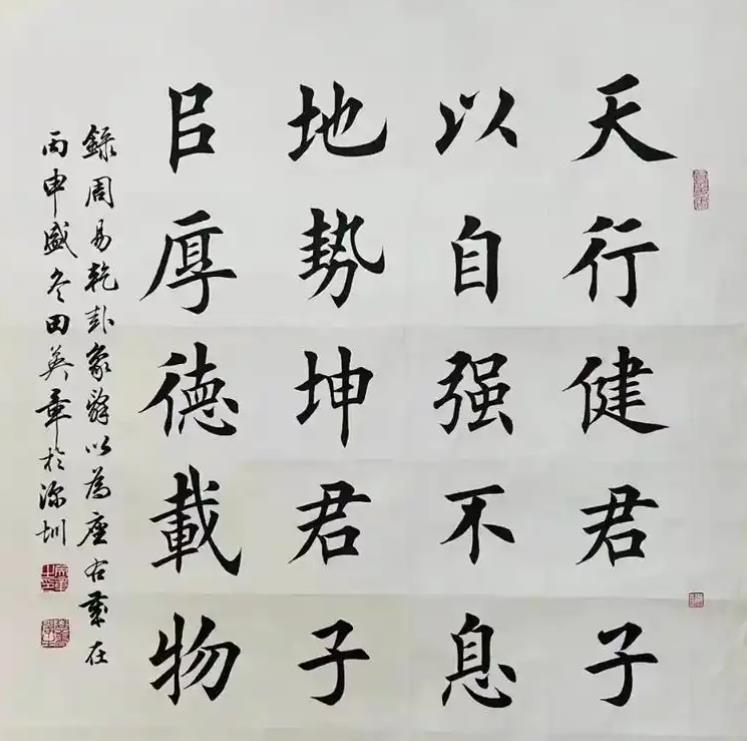 天行健君子
以自强不息
地势坤君子
㠯厚德載物
錄周易乾卦象辭以為座右歲在
丙申盛冬田英章於深圳